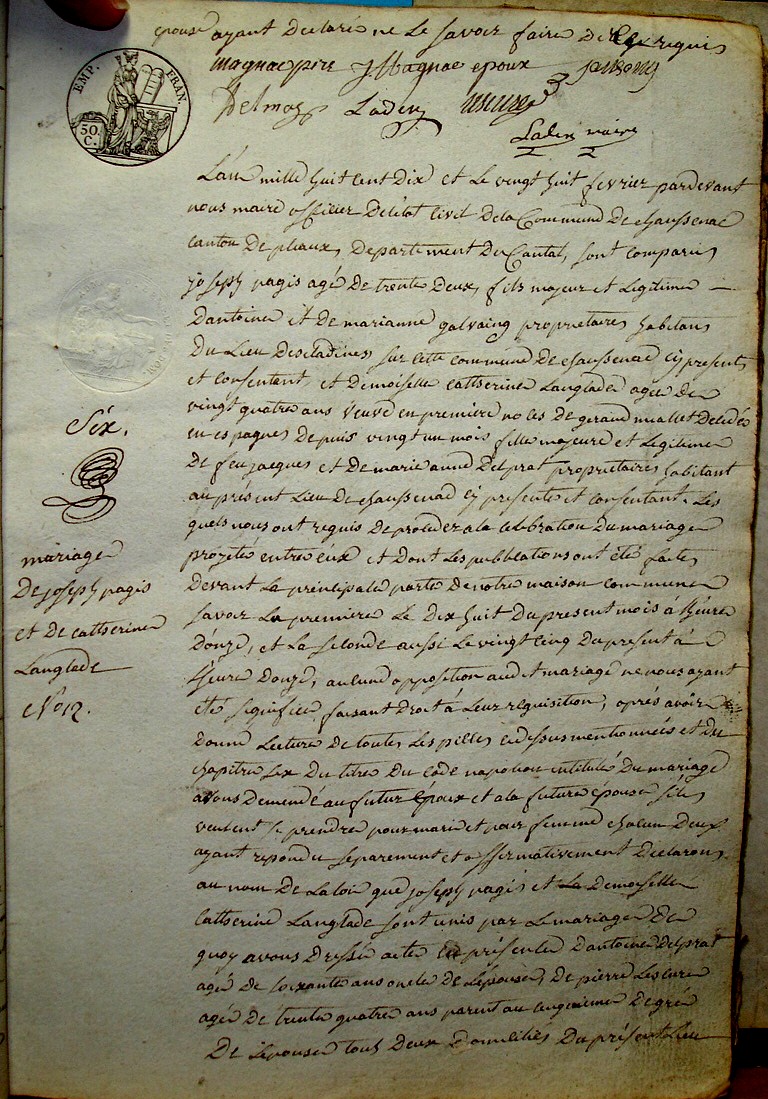 epouse ayant declaré ne le savoir faire de ce requis
magnac pere J Magnac epoux
Delmas Laden
Laden maire
EMP. FRAN.
50 C.
L'an mille huit cent dix et le vingt huit fevrier pardevant
nous maire officier de l'etat civil de la Commune de chaussenac
canton de pleaux, departement du Cantal, sont comparus
joseph pagis agé de trente deux, fils majeur et legitime
d'antoine et de marianne galvaing propriétaires habitans
du lieu descladines sur cette commune de chaussenac cy presents
et consentant et demoiselle catherine Langlade agée de
vingt quatre ans veuve en premiere noces de geraud miallet décédé
en espagne depuis vingt un mois fille majeure et legitime
de feu jacques et de marie anne delprat propriétaires habitant
au present lieu de chaussenac cy presente et consentant. Les
quels nous ont requis de proceder a la celebration du mariage
projeté entre eux et dont les publications ont été faites
devant la principale porte de notre maison commune
savoir la premiere le dix huit du present mois à l'heure
d'onze, et la seconde aussi le vingt cinq du present à
l'heure donze, aucune opposition audit mariage ne nous ayant
été signifiée, faisant droit à leur requisition, après avoir
donné lecture de toutes les pieces cidessus mentionnées et du
chapitre six du titre du code napoleon intitulé du mariage
avons demendé au futur époux et a la future epouse s'ils
veulent se prendre pour mari et pour femme chacun deux
ayant repondu separement et affirmativement declarons
au nom de la loi que joseph pagis et la demoiselle
catherine Langlade sont unis par le mariage de
quoy avons dressé acte en présence d'antoine delprat
agé de soixante ans oncle de l'épouse, de pierre Lescure
agé de trente quatre ans parent au cinquieme degré
de l'epouse tous deux domiciliés du présent lieu
Six.
mariage
de joseph pagis
et de catherine
Langlade
No 12.